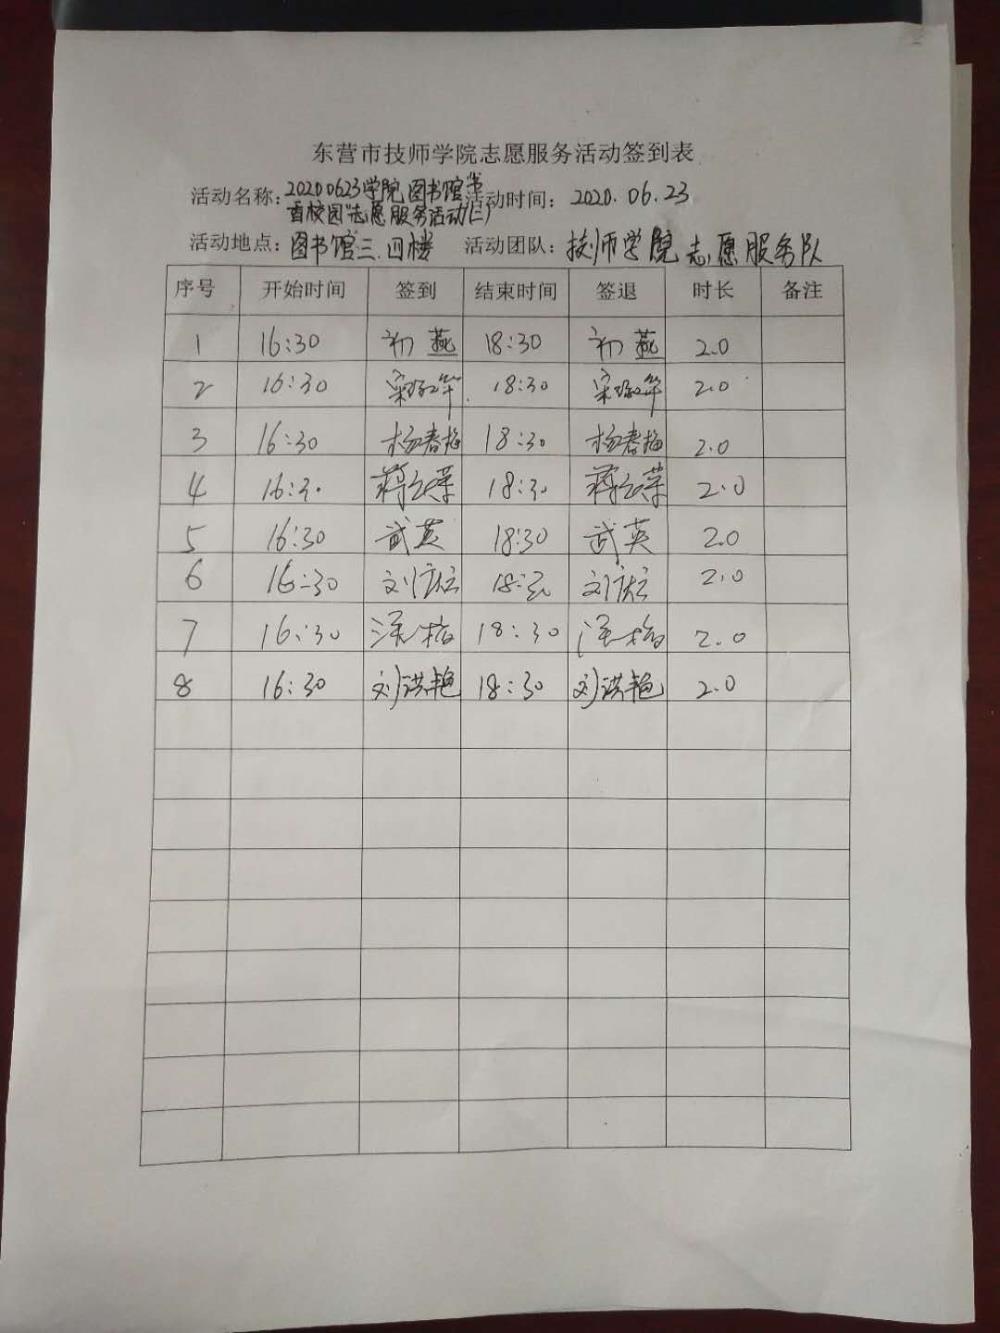 东营市技师学院志愿服务活动签到表
活动名称：20200623学院图书馆"书香校园"志愿服务活动(二) 活动时间：2020.06.23
活动地点：图书馆三.四楼 活动团队：技师学院志愿服务队
序号 开始时间 签到 结束时间 签退 时长 备注
1 16:30 初燕 18:30 初燕 2.0
2 16:30 18:30 2.0
3 16:30 杨春梅 18:30 杨春梅 2.0
4 16:30 18:30 2.0
5 16:30 武英 18:30 武英 2.0
6 16:30 18:30 2.0
7 16:30 18:30 2.0
8 16:30 刘洪艳 18:30 刘洪艳 2.0